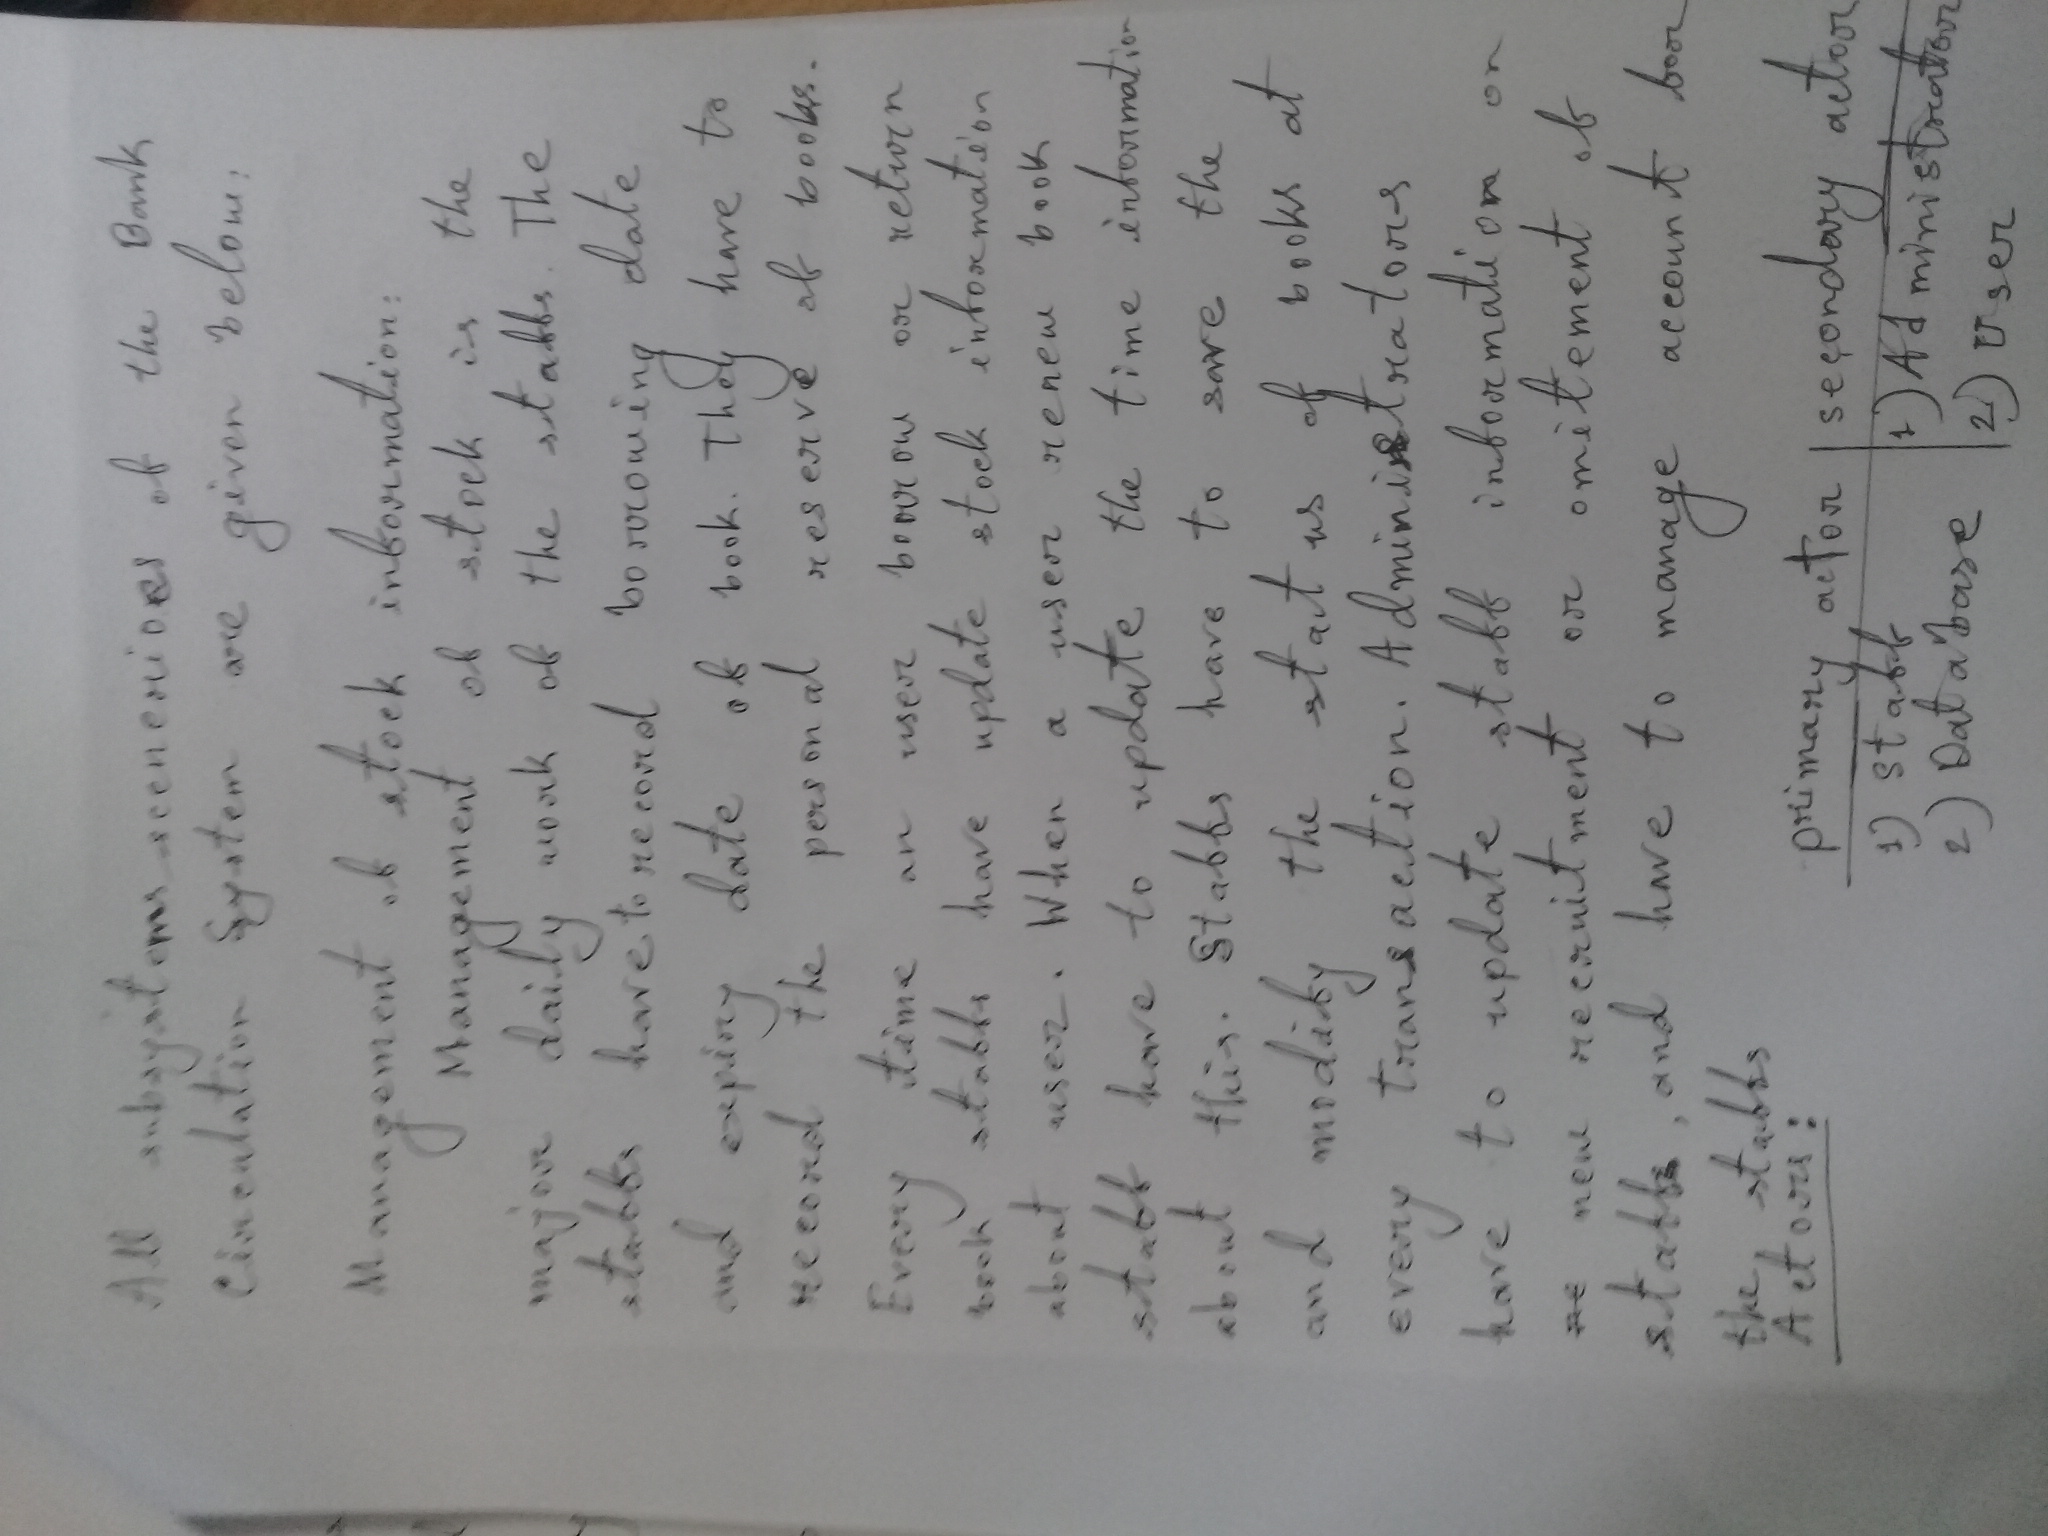 All subsystems scenerioes of the Bank
Circulation System are given below:
Management of stock information:
Management of stock is the
major daily work of the staffs. The
staffs have to record borrowing date
and expiry date of book. They have to
record the personal reserve of books.
Every time an user borrow or return
book staffs have update stock information
about user. When a user renew book
staff have to update the time information
about this. Staffs have to save the
and modify the status of books at
every transaction. Administrators
have to update staff information on
new recruitment or omitement of
staffs, and have to manage account for
the, staffs
Actors:
primary actor | secondary actor
1) Staff 1) Administrator
2) Database 2) User